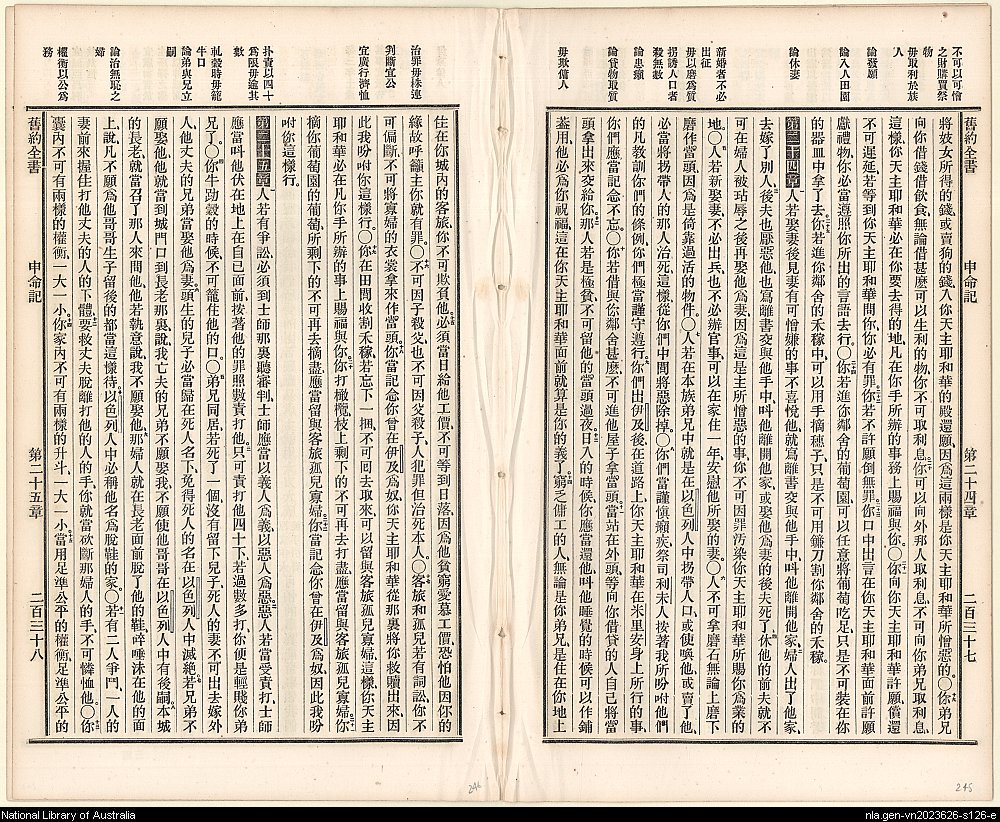 不可以可憎
之財賻買祭
物
毋取利於族
人
論發願
論入人田園
論休妻
新婚者不必
出征
毋以磨為質
拐誘人口者
殺無赦
論患癩
論貸物取質
毋欺傭人
舊約全書
申命記
第二十四章
二百三十七
將妓女所得的錢、或賣狗的錢、入你天主耶和華的殿還願、因為這兩樣是你天主耶和華所憎惡的。○你弟兄
向你借錢借飲食、無論借甚麼可以生利的物、你不可取利息。你可以向外邦人取利息、不可向你弟兄取利息、
這樣、你天主耶和華必在你要去得的地、凡在你手所辦的事務上賜福與你。○你向你天主耶和華許願償還
不可遲延、若等到你天主耶和華問你、你必有罪。你若不許願倒無罪。你口中出言、在你天主耶和華面前許願
獻禮物、你必當遵照你所出的言語去行。○你若進你鄰舍的葡萄園、可以任意將葡萄吃足、只是不可裝在你
的器皿中拿了去。你若進你鄰舍的禾稼中、可以用手摘穗子、只是不可用鐮刀割你鄰舍的禾稼。
第二十四章 人若娶妻後、見妻有可憎嫌的事、不喜悅他、就寫離書交與他手中、叫他離開他家。婦人出了他家、
去嫁了別人、後夫也厭惡他、也寫離書交與他手中、叫他離開他家、或娶他為妻的後夫死了、休他的前夫、就不
可在婦人被玷辱之後、再娶他為妻、因為這是主所憎惡的事、你不可因罪污染你天主耶和華所賜你為業的
地。○人若新娶妻、不必出兵、也不必辦官事、可以在家住一年、安慰他所娶的妻。○人不可拿磨石、無論上磨下
磨作當頭、因為是倚靠過活的物件。○人若在本族弟兄中、就是在以色列人中拐帶人口、或使喚他、或賣了他、
必當將拐帶人的那人治死、這樣從你們中間將惡除掉。○你們當謹慎癩疾、祭司利未人按著我所吩咐他們
的、凡教訓你們的條例、你們極當謹守遵行。你們出伊及後、在道路上、你天主耶和華在米里安身上所行的事、
你們應當記念不忘。○你若借與你鄰舍甚麼、不可進他屋子拿當頭、當站在外頭、等向你借貸的人、自己將當
頭拿出來交給你。那人若是極貧、不可留他的當頭過夜、日入的時候你應當還他、叫他睡覺的時候可以作鋪
蓋用、他必為你祝福、這在你天主耶和華面前就算是你的義了。窮乏傭工的人、無論是你弟兄、是住在你地上
治罪毋株連
判斷宜公
宜廣行濟恤
扑責以四十
為限毋逾其
數
軋穀時毋籠
牛口
論弟與兄立
嗣
論治無恥之
婦
權衡以公為
務
住在你城內的客旅、你不可欺貧他。必須當日給他工價、不可等到日落、因為他貧窮愛慕工價、恐怕他因你的
緣故呼籲主、你就有罪。○不可因子殺父、也不可因父殺子、人犯罪但治死本人。○客旅和孤兒若有詞訟、你不
可偏斷、不可將寡婦的衣裳拿來作當頭。你當記念你曾在伊及為奴、你天主耶和華從那裏將你救贖出來、因
此我吩咐你這樣行。○你在田間收割禾稼、若忘下一捆、不可回去取來、可以留與客旅孤兒寡婦、這樣、你天主
耶和華必在凡你手所辦的事上賜福與你。你打橄欖、枝上剩下的不可再去打盡、應當留與客旅孤兒寡婦。你
摘你葡萄園的葡萄、所剩下的不可再去摘盡、應當留與客旅孤兒寡婦。你當記念你曾在伊及為奴、因此我吩
咐你這樣行。
第二十五章 人若有爭訟、必須到士師那裏聽審判、士師應當以義人為義、以惡人為惡。惡人若當受責打、士師
應當叫他伏在地上、在自己面前按著他的罪照數責打他。只可責打他四十下、若過數多打、你便是輕賤你弟
兄了。○你牛踹穀的時候、不可籠住他的口。○弟兄同居、若死了一個、沒有留下兒子、死人的妻不可出去嫁外
人、他丈夫的兄弟當娶他為妻。頭生的兒子必當歸在死人名下、免得死人的名在以色列人中滅絕。若兄弟不
願娶他、他就當到城門口到長老那裏說、我亡夫的兄弟不願娶我、不願使他哥哥在以色列人中有後嗣。本城
的長老就當召了那人來問他、他若執意說、我不願娶他。那婦人就在長老面前脫了他的鞋、唾唾沫在他的面
上說、凡不願為他哥哥生子留後的、都當這樣待。以色列人中必稱他名為脫鞋的家。○若有二人爭鬥、一人的
妻前來握住打他丈夫的人的下體、要救丈夫脫離打他的人的手、你就當砍斷那婦人的手、不可憐恤他。○你
囊內不可有兩樣的權衡、一大一小。你家內不可有兩樣的升斗、一大一小。當用足準公平的權衡、足準公平的
舊約全書
申命記
第二十五章
二百三十八
246
245
National Library of Australia
nla.gen-vn2023626-s126-e